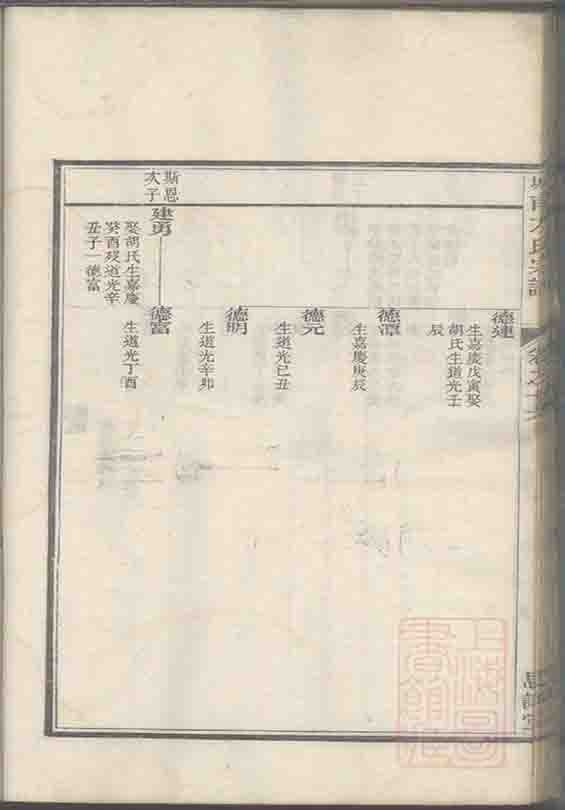 德連
生嘉慶戊寅娶
胡氏生道光壬
辰
德潭
生嘉慶庚辰
德元
生道光己丑
德明
生道光辛卯
斯恩
次子
建勇
娶胡氏生嘉慶
癸酉歿道光辛
丑子一德富
德富
生道光丁酉
上海圖
書館藏